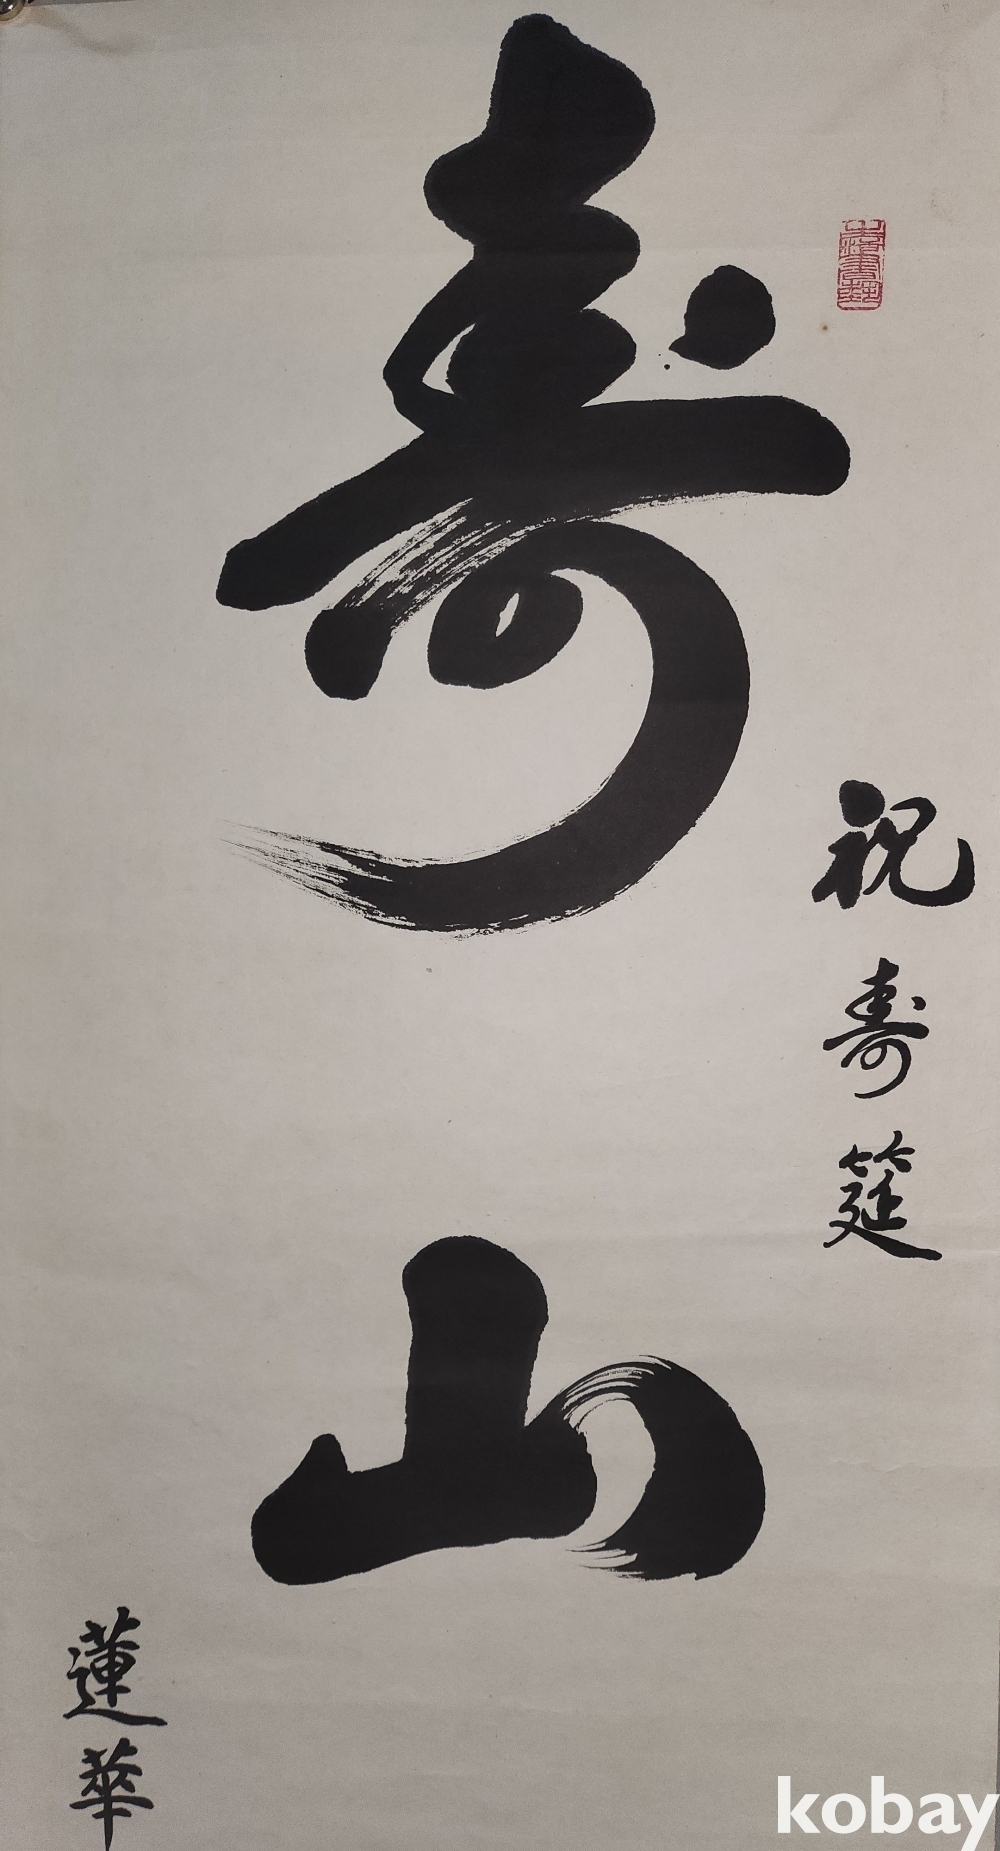 壽山
祝壽筵
蓮華
kobay